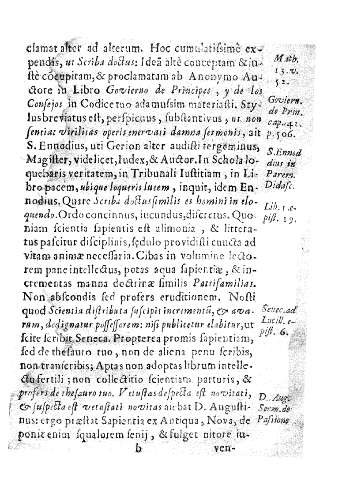 clamat alter ad alterum. Hoc cumulatissimè ex-
pendis, ut Scriba doctus: Ideā altè conceptam & in-
stè coeuptam, & proclamatam ab Anonymo Au-
ctore in Libro Govierno de Principes, y de los
Consejos in Codice tuo adamussim materiasti. Sty-
lus breviatus est, perspicuus, substantivus, ut non
sentiat virilitas operis enervati damna sermonis, ait
S. Ennodius, uti Gerion alter audisti tergeminus,
Magister, videlicet, Iudex, & Auctor. In Schola lo-
quebaris veritatem, in Tribunali Iustitiam, in Li-
bro pacem, ubique loqueris lucem, inquit, idem En-
nodius. Quare Scriba doctus similis es homini in elo-
quendo. Ordo concinnus, iucundus, disertus. Quo-
niam scientia sapientis est alimonia, & littera-
tus pascitur disciplinis, sedulo providisti cuncta ad
vitam animæ necessaria. Cibas in volumine lecto-
rem pane intellectus, potas aqua sapientiæ, & in-
crementas manna doctrinæ similis Patrifamilias.
Non abscondis sed profers eruditionem. Nosti
quod Scientia distributa suscipit incrementū, & ava-
rum, dedignatur possessorem: nisi publicetur elabitur, ut
scite scribit Seneca. Propterea promis sapientiam,
sed de thesauro tuo, non de aliena penu scribis,
non transcribis; Aptas non adoptas librum intelle-
ctu fertili; non collectitio scientiam parturis, &
profers de thesauro tuo. Vetustas despecta est novitati,
& suspecta est vetustati novitas aiebat D. Augusti-
nus: ergo præstat Sapientis ex Antiqua, Nova, de
ponit enim squalorem senij, & fulget nitore iu-
b
ven-
Math.
13. v.
52.
Goviern.
de Prin.
cap. 42.
p. 506.
S. Ennod
dius in
Paren.
Didasc.
Lib. 1. e-
pist. 19.
Senec. ad
Lucill. e-
pist. 6.
D. Aug.
Serm. de
Passione